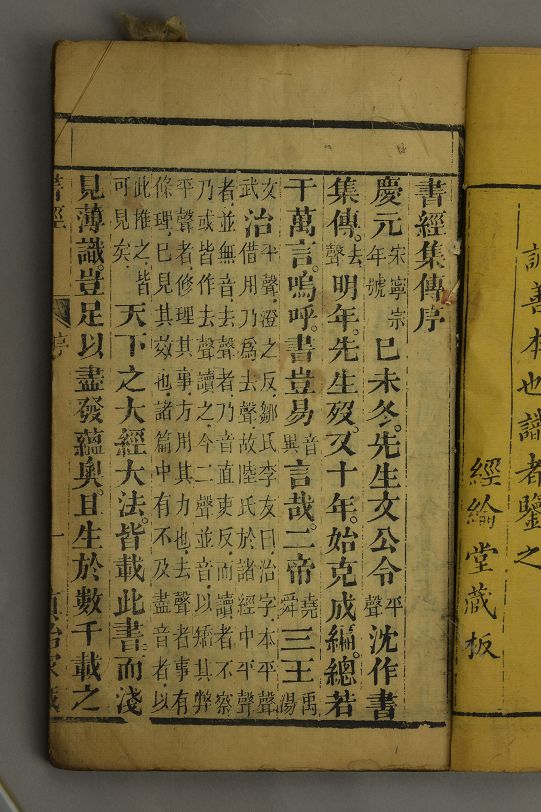 善本也讀者鑒之
經綸堂藏板
書經集傳序
慶元宋寧宗年號己未冬。先生文公令平聲沈作書
集傳。去聲明年。先生歿。又十年。始克成編。總若
干萬言。嗚呼。書豈易音異言哉。二帝堯舜三王禹湯
文武治平聲澄之反鄒氏李友曰治字本平聲借用乃爲去聲故陸氏於諸經中平聲
者並無音去聲者乃音直吏反而讀者不察乃或皆作去聲讀之今二聲並音以矯其弊
平聲者修理其事方用其力也去聲者事有條理已見其效也諸篇中有不及盡音者以
此推之皆可見矣天下之大經大法。皆載此書。而淺
見薄識。豈足以盡發蘊奧。且生於數千載之
書經
序
一